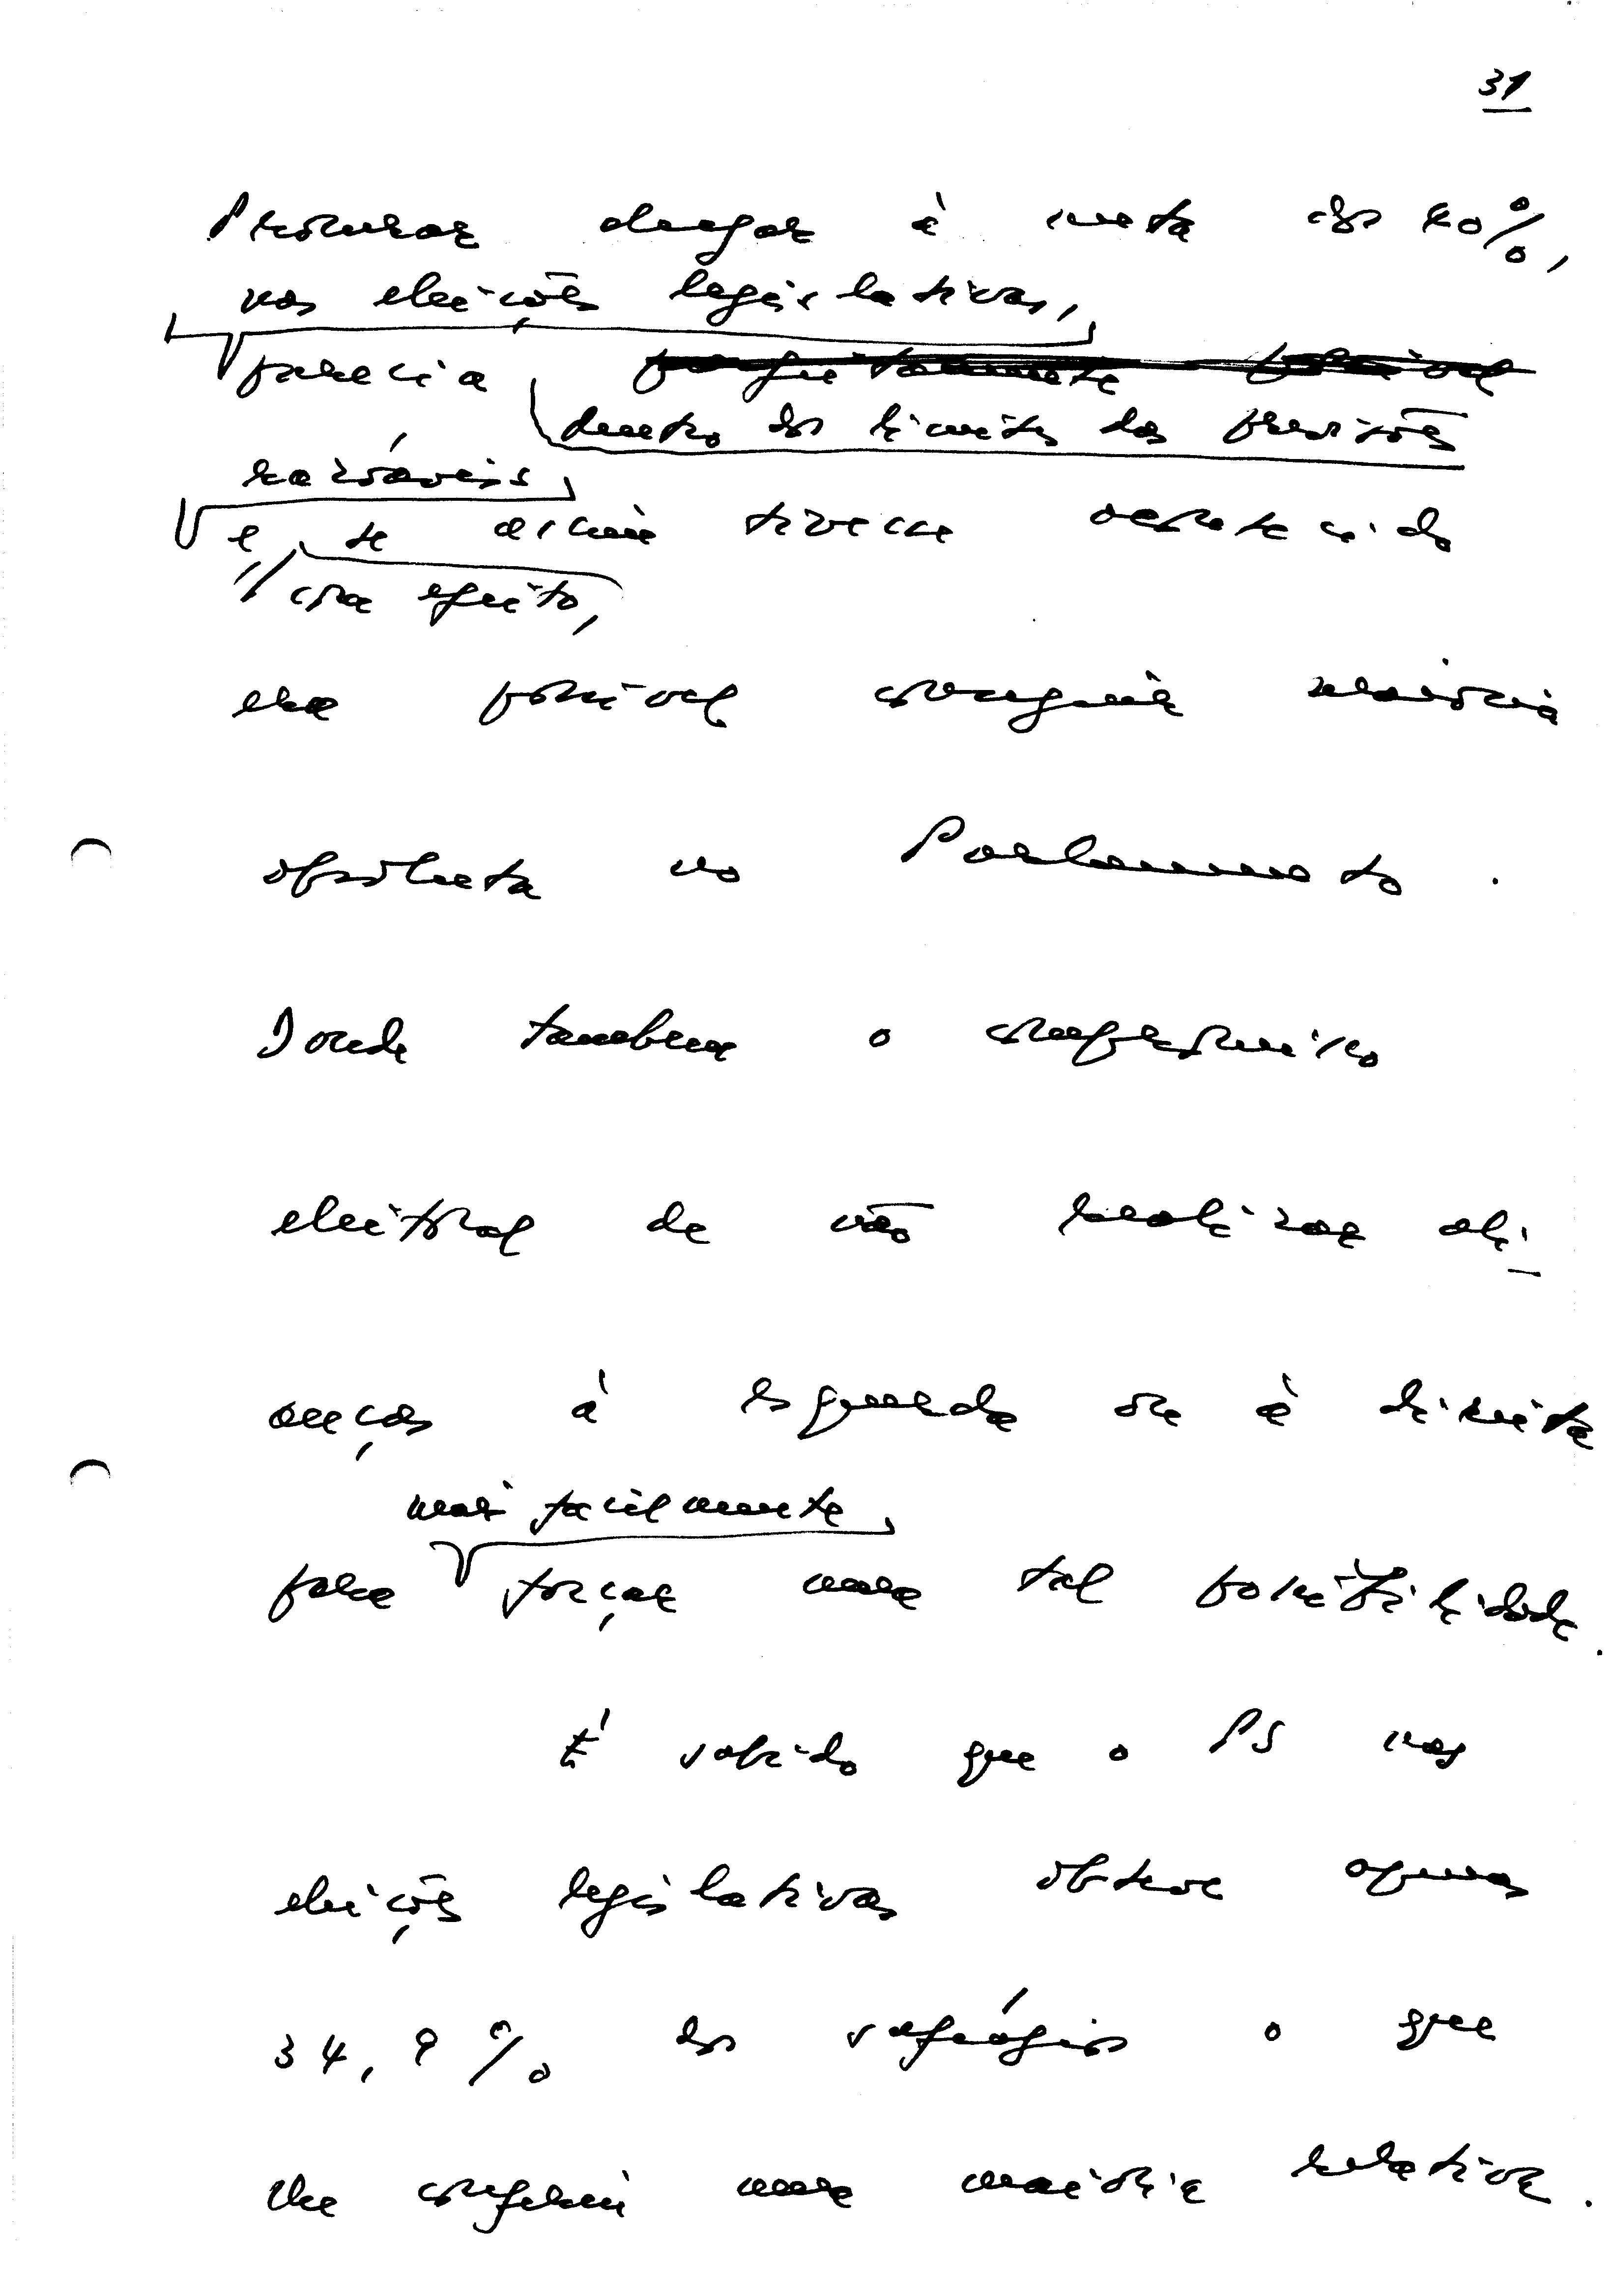 31
Procurar chegar à meta dos 40%,
nas eleições legislativas,
parecia perfeitamente possível
dentro dos limites das previsões
razoáveis
e, se assim tivesse acontecido
com efeito,
era possível conseguir maioria
absoluta no Parlamento.
Donde tambem o compromisso
eleitoral de não realizar ali-
anças à esquerda ou à direita
mais facilmente
para forçar uma tal possibilidade.
É sabido que o PS nas
eleições legislativas obteve apenas
34,9% dos sufrágios o que
lhe conferiu uma maioria relativa.